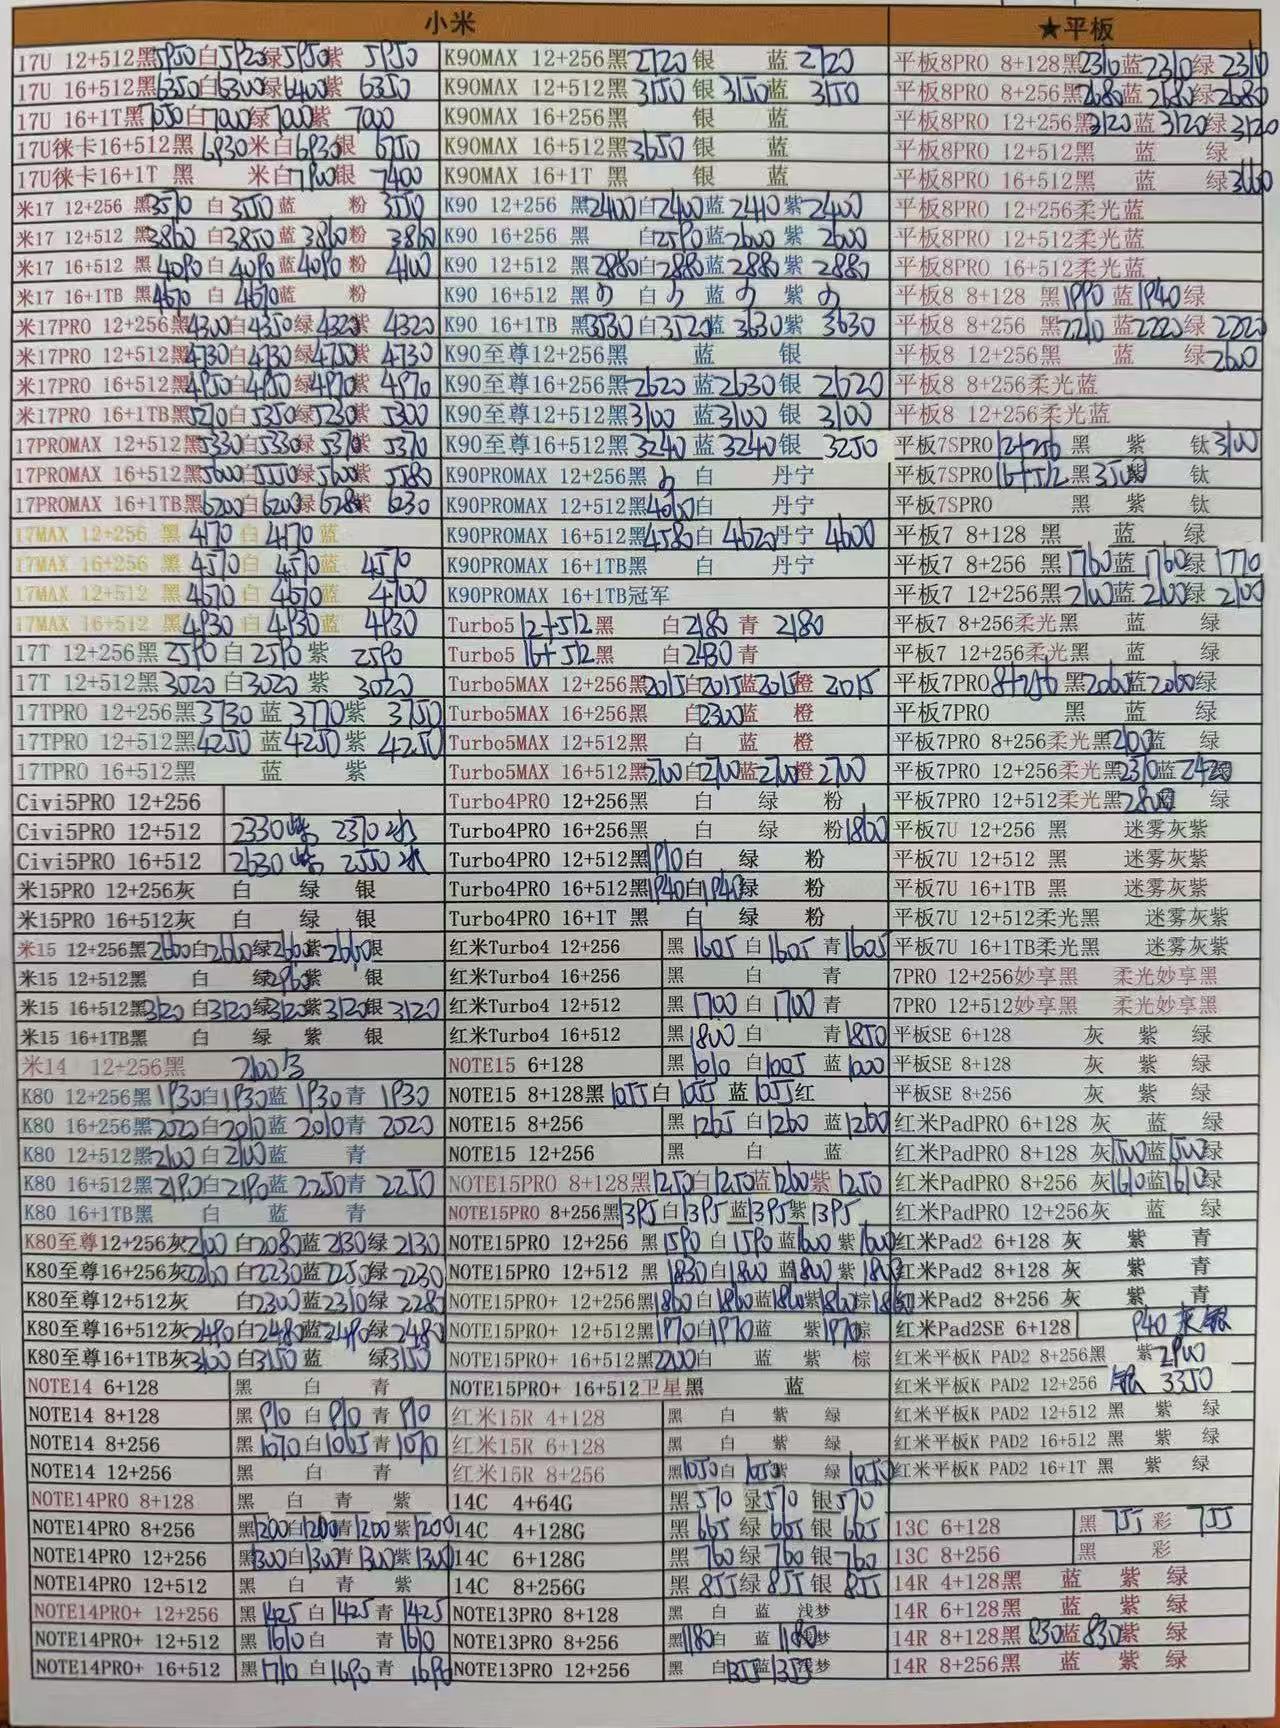 小米
17U 12+512黑5950白5920绿5950紫 5950
17U 16+512黑6350白6300绿6400紫 6350
17U 16+1T黑7050白7000绿7000紫 7000
17U徕卡16+512黑 6930米白6930银 6750
17U徕卡16+1T 黑 米白7900银 7400
米17 12+256 黑3570 白3550蓝 粉 3550
米17 12+512 黑3860 白3850蓝3860粉 3860
米17 16+512 黑4090 白4090蓝4090粉 4100
米17 16+1TB 黑4670 白 4670蓝 粉
米17PRO 12+256黑4300白4350绿4320紫 4320
米17PRO 12+512黑4730白4730绿4750紫 4730
米17PRO 16+512黑4950白4950绿4970紫 4970
米17PRO 16+1TB黑5270白5350绿5230紫 5300
17PROMAX 12+512黑5330白5330绿5370紫 5370
17PROMAX 16+512黑5600白5550绿5600紫 5580
17PROMAX 16+1TB黑6200白6200绿6280紫 6230
17MAX 12+256 黑 4170 白 4170蓝
17MAX 16+256 黑 4570白 4570蓝 4570
17MAX 12+512 黑 4670白 4670蓝 4700
17MAX 16+512 黑 4930白 4930蓝 4930
17T 12+256黑 2590 白2590 紫 2590
17T 12+512黑3020 白3020 紫 3020
17TPRO 12+256黑3730 蓝 3770紫 3750
17TPRO 12+512黑4250 蓝4250紫 4250
17TPRO 16+512黑 蓝 紫
Civi5PRO 12+256
Civi5PRO 12+512 2330紫 2370冰
Civi5PRO 16+512 2630紫 2550冰
米15PRO 12+256灰 白 绿 银
米15PRO 16+512灰 白 绿 银
米15 12+256黑2600白2600绿2600紫2600银
米15 12+512黑 白 绿2960紫 银
米15 16+512黑3120 白3120绿3120紫3120银 3120
米15 16+1TB黑 白 绿 紫 银
米14 12+256黑 2600
K80 12+256黑1930白1930蓝 1930青 1930
K80 16+256黑2020白2010蓝 2010青 2020
K80 12+512黑2100白2100蓝 青
K80 16+512黑2190白2190蓝 2250青 2250
K80 16+1TB黑 白 蓝 青
K80至尊12+256灰2100 白2080蓝2130绿 2130
K80至尊16+256灰2260 白2230蓝2250绿 2230
K80至尊12+512灰 白2300蓝2310绿 2280
K80至尊16+512灰2490白2480蓝2490绿 2480
K80至尊16+1TB灰3100 白3150蓝 绿3150
NOTE14 6+128 黑 白 青
NOTE14 8+128 黑 910 白910 青 910
NOTE14 8+256 黑1070白1065青1070
NOTE14 12+256 黑 白 青
NOTE14PRO 8+128 黑 白 青 紫
NOTE14PRO 8+256 黑1200白1200青1200紫1200
NOTE14PRO 12+256 黑1300白1300青1300紫1300
NOTE14PRO 12+512 黑 白 青 紫
NOTE14PRO+ 12+256 黑1425白1425青1425
NOTE14PRO+ 12+512 黑1610白 青1610
NOTE14PRO+ 16+512 黑1710白1690青 1690
K90MAX 12+256黑2720银 蓝 2720
K90MAX 12+512黑3150银3150蓝 3150
K90MAX 16+256黑 银 蓝
K90MAX 16+512黑3650银 蓝
K90MAX 16+1T 黑 银 蓝
K90 12+256 黑2400白2400蓝2410紫2400
K90 16+256 黑 白2590蓝2600紫 2600
K90 12+512 黑2880白2880蓝 2880紫 2880
K90 16+512 黑 白 蓝 紫
K90 16+1TB 黑3530白3520蓝 3630紫 3630
K90至尊12+256黑 蓝 银
K90至尊16+256黑2620 蓝2630银 2620
K90至尊12+512黑3100 蓝3100 银 3100
K90至尊16+512黑3240蓝3240银 3250
K90PROMAX 12+256黑 白 丹宁
K90PROMAX 12+512黑 白 丹宁
K90PROMAX 16+512黑4580白 4620丹宁 4600
K90PROMAX 16+1TB黑 白 丹宁
K90PROMAX 16+1TB冠军
Turbo5 12+512黑 白2180 青 2180
Turbo5 16+512黑 白2430青
Turbo5MAX 12+256黑2015白2015蓝2015橙 2015
Turbo5MAX 16+256黑 白2300蓝 橙
Turbo5MAX 12+512黑 白 蓝 橙
Turbo5MAX 16+512黑2700白2700蓝2700橙 2700
Turbo4PRO 12+256黑 白 绿 粉
Turbo4PRO 16+256黑 白 绿 粉1800
Turbo4PRO 12+512黑1910白 绿 粉
Turbo4PRO 16+512黑1940白1940绿 粉
Turbo4PRO 16+1T 黑 白 绿 粉
红米Turbo4 12+256 黑 1605白1605青1605
红米Turbo4 16+256 黑 白 青
红米Turbo4 12+512 黑 1700白 1700青
红米Turbo4 16+512 黑1800白 青1850
NOTE15 6+128 黑 1010 白1005 蓝1000
NOTE15 8+128黑1055白 1055 蓝1055红
NOTE15 8+256 黑1265白1260 蓝1260
NOTE15 12+256 黑 白 蓝
NOTE15PRO 8+128黑1250白1250蓝1260紫1250
NOTE15PRO 8+256黑1395白1395蓝1395紫1395
NOTE15PRO 12+256 黑1590白1590蓝1600紫1600
NOTE15PRO 12+512 黑 1830白1800蓝1800紫 1800
NOTE15PRO+ 12+256黑1860白1860蓝1860紫1860棕1860
NOTE15PRO+ 12+512黑1970白1970蓝 紫1970棕
NOTE15PRO+ 16+512黑2200白 蓝 紫 棕
NOTE15PRO+ 16+512卫星黑 蓝
红米15R 4+128 黑 白 紫 绿
红米15R 6+128 黑 白 紫 绿
红米15R 8+256 黑1050白 1050紫 绿 1050
14C 4+64G 黑570 绿570 银570
14C 4+128G 黑 665 绿 665银 665
14C 6+128G 黑 760绿 760银 760
14C 8+256G 黑 855绿 855银 855
NOTE13PRO 8+128 黑 白 蓝 浅梦
NOTE13PRO 8+256 黑1180白 蓝 1180浅梦
NOTE13PRO 12+256 黑 白1355蓝1355浅梦
★平板
平板8PRO 8+128黑2310蓝2310绿 2310
平板8PRO 8+256黑2680蓝2680绿2680
平板8PRO 12+256黑3120蓝3120绿3120
平板8PRO 12+512黑 蓝 绿
平板8PRO 16+512黑 蓝 绿
平板8PRO 12+256柔光蓝
平板8PRO 12+512柔光蓝
平板8PRO 16+512柔光蓝
平板8 8+128 黑1990 蓝1940绿
平板8 8+256 黑2210 蓝2220绿 2220
平板8 12+256黑 蓝 绿2600
平板8 8+256柔光蓝
平板8 12+256柔光蓝
平板7SPRO 12+256 黑 紫 钛3100
平板7SPRO 16+512黑3500紫 钛
平板7SPRO 黑 紫 钛
平板7 8+128 黑 蓝 绿
平板7 8+256 黑1760蓝 1760绿 1770
平板7 12+256黑2100蓝2100绿 2100
平板7 8+256柔光黑 蓝 绿
平板7 12+256柔光黑 蓝 绿
平板7PRO8+256 黑2060蓝2060绿
平板7PRO 黑 蓝 绿
平板7PRO 8+256柔光黑2100蓝 绿
平板7PRO 12+256柔光黑2310蓝 2420绿
平板7PRO 12+512柔光黑2800蓝 绿
平板7U 12+256 黑 迷雾灰紫
平板7U 12+512 黑 迷雾灰紫
平板7U 16+1TB 黑 迷雾灰紫
平板7U 12+512柔光黑 迷雾灰紫
平板7U 16+1TB柔光黑 迷雾灰紫
7PRO 12+256妙享黑 柔光妙享黑
7PRO 12+512妙享黑 柔光妙享黑
平板SE 6+128 灰 紫 绿
平板SE 8+128 灰 紫 绿
平板SE 8+256 灰 紫 绿
红米PadPRO 6+128 灰 蓝 绿
红米PadPRO 8+128 灰1500蓝1500绿
红米PadPRO 8+256 灰1610蓝1610绿
红米PadPRO 12+256灰 蓝 绿
红米Pad2 6+128 灰 紫 青
红米Pad2 8+128 灰 紫 青
红米Pad2 8+256 灰 紫 青
红米Pad2SE 6+128 940 灰 银
红米平板K PAD2 8+256黑 紫2900
红米平板K PAD2 12+256 银 3350
红米平板K PAD2 12+512 黑 紫 绿
红米平板K PAD2 16+512 黑 紫 绿
红米平板K PAD2 16+1T 黑 紫 绿
13C 6+128 黑 755 彩 755
13C 8+256 黑 彩
14R 4+128黑 蓝 紫 绿
14R 6+128黑 蓝 紫 绿
14R 8+128黑 830蓝830紫 绿
14R 8+256黑 蓝 紫 绿